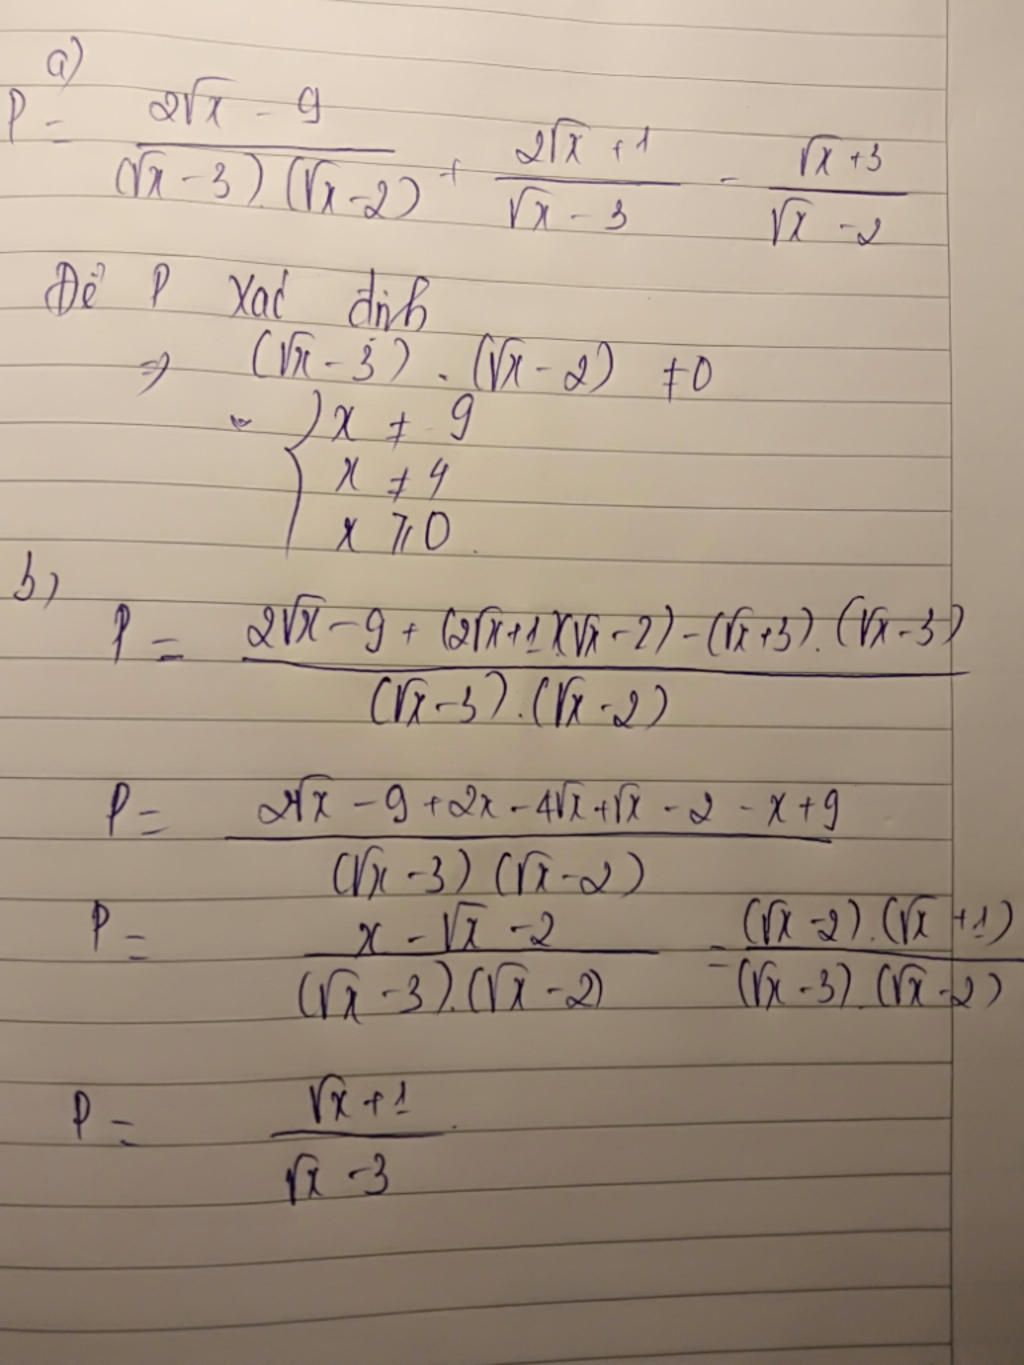 a)
P = (2√x - 9)/((√x - 3).(√x - 2)) + (2√x + 1)/(√x - 3) - (√x + 3)/(√x - 2)
Để P xac định
⇒ (√x - 3) . (√x - 2) ≠ 0
{ x ≠ 9
x ≠ 4
x ⩾ 0.
b)
P = (2√x - 9 + (2√x + 1)(√x - 2) - (√x + 3).(√x - 3))/((√x - 3).(√x - 2))
P = (2√x - 9 + 2x - 4√x + √x - 2 - x + 9)/((√x - 3)(√x - 2))
P = (x - √x - 2)/((√x - 3).(√x - 2)) = ((√x - 2).(√x + 1))/((√x - 3).(√x - 2))
P = (√x + 1)/(√x - 3)